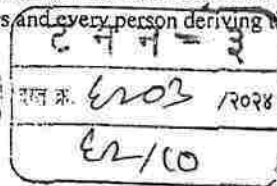 s and every person deriving
ट न न - ३
दस्त क्र. ६२०३ /२०२४
६२/८०